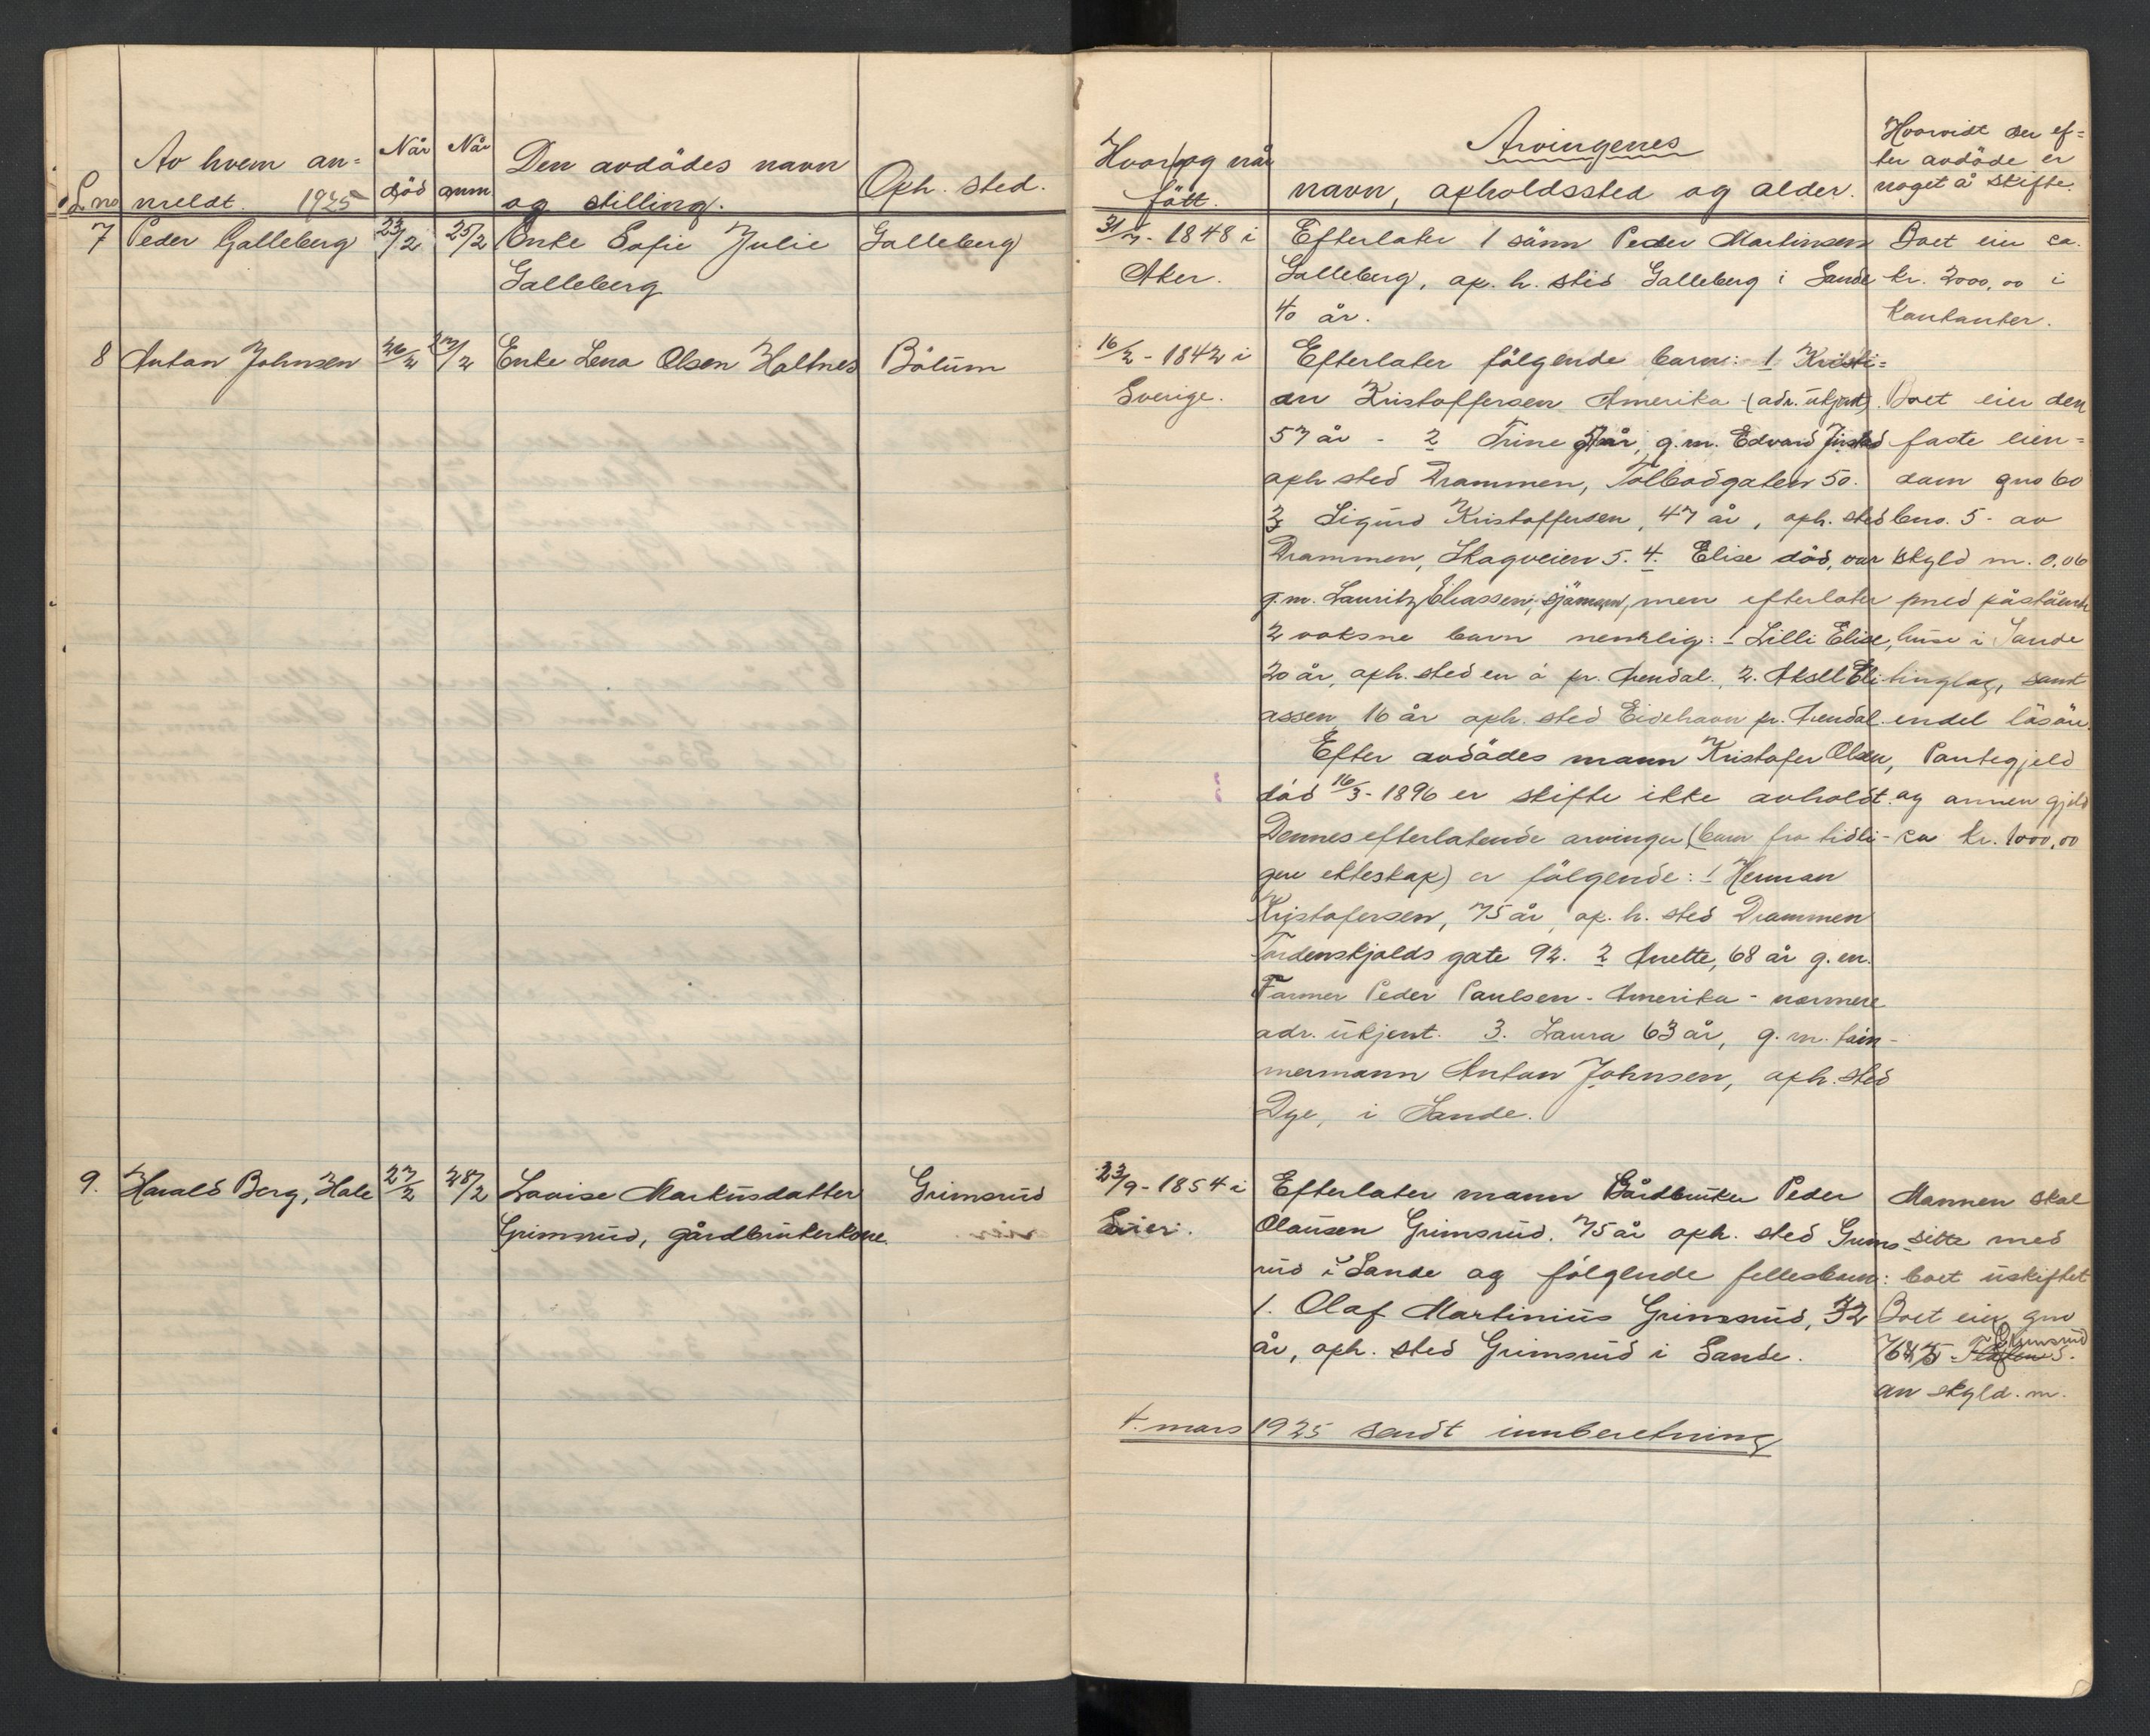 L.no
Av hvem an=
meldt. 1925
Når
död
Når
anm
Den avdödes navn
og stilling.
Oph. sted.
7 Peder Galleberg 23/2 25/2 Enke Sofie Julie Galleberg
Galleberg
8 Anton Johnsen 26/2 27/2 Enke Lena Olsen Holtnes Bölum
9. Harald Berg, Hale 27/2 28/2 Lovise Markusdatter Grimsrud
Grimsrud, gårdbrukerkone.
Hvor og når
fött.
Arvingenes
navn, opholdssted og alder.
Hvorvidt der ef=
ter avdöde er
noget å skifte.
31/7 - 1848 i Efterlater 1 sönn Peder Martinsen Boet eier ca.
Aker. Galleberg, op. h. sted Galleberg i Sande kr. 2000,00 i
40 år. Kontanter.
16/2 - 1842 i Efterlater fölgende barn: 1 Kristi=
Sverige. an Kristoffersen Amerika (adr. ukjent). Boet eier den
57 år - 2 Trine år, g.m. Edvard faste eien=
oph sted Drammen, Tolbodgaten 50. dom gno 60
3 Sigurd Kristoffersen, 47 år, oph. sted bno. 5 - av
Drammen, Skogveien 5. 4. Elise död, var skyld m. 0,06
g.m. Lauritz Eliassen, sjömann, men efterlater med påstående
2 voksne barn nemlig: 1 Lilli Elise, huse i Sande
20 år, oph. sted en ö pr. Arendal. 2. Aksel Eli- tinglag, samt
assen 16 år oph. sted Eidehavn pr. Arendal. endel lösöre.
Efter avdödes mann Kristofer Olsen, Pantegjeld
död 16/3 - 1896 er skifte ikke avholdt. og annen gjeld
Dennes efterlatende arvinger (barn fra tidli- ca kr. 1000,00
gere ekteskap) er fölgende: 1 Herman
Kristofersen, 75 år, op. h. sted Drammen
Tordenskjolds gate 92. 2 Anette, 68 år g.m.
Farmer Peder Paulsen - Amerika - nærmere
adr. ukjent. 3. Laura 63 år, g.m. töm-
mermann Anton Johnsen, oph. sted
Dye, i Sande.
23/9 - 1854 i Efterlater mann Gårdbruker Peder Mannen skal
Eier. Olausen Grimsrud. 75 år oph. sted Grims- sitte med
rud i Sande og fölgende fellesbarn: boet uskiftet
1. Olaf Martinius Grimsrud, 32 Boet eier gno
år, oph. sted Grimsrud i Sande. Grimsrud
av skyld. m.
4. mars 1925 sendt innberetning